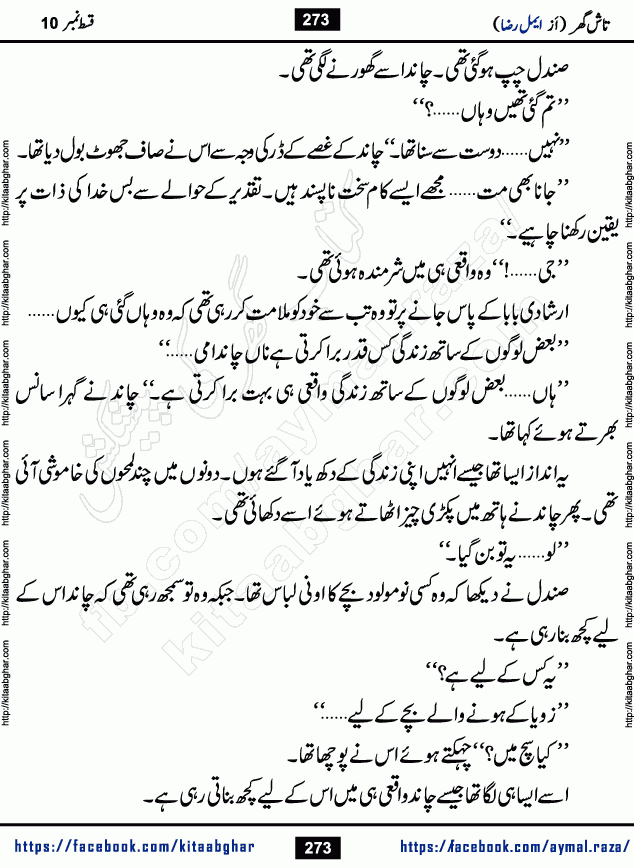 تاش گھر (از ایمل رضا)
273
قسط نمبر 10
صندل چپ ہو گئی تھی۔ چاند اسے گھورنے لگی تھی۔
’’تم گئی تھیں وہاں......؟‘‘
’’نہیں...... دوست سے سنا تھا۔‘‘ چاند کے غصے کے ڈر کی وجہ سے اس نے صاف جھوٹ بول دیا تھا۔
’’جانا بھی مت...... مجھے ایسے کام سخت ناپسند ہیں۔ تقدیر کے حوالے سے بس خدا کی ذات پر
یقین رکھنا چاہیے۔‘‘
’’جی......!‘‘ وہ واقعی ہی میں شرمندہ ہوئی تھی۔
ارشادی بابا کے پاس جانے پر تو وہ تب سے خود کو ملامت کر رہی تھی کہ وہ وہاں گئی ہی کیوں......
’’بعض لوگوں کے ساتھ زندگی کس قدر برا کرتی ہے ناں چاند امی......‘‘
’’ہاں...... بعض لوگوں کے ساتھ زندگی واقعی ہی بہت برا کرتی ہے۔‘‘ چاند نے گہرا سانس
بھرتے ہوئے کہا تھا۔
یہ انداز ایسا تھا جیسے انہیں اپنی زندگی کے دکھ یاد آ گئے ہوں۔ دونوں میں چند لمحوں کی خاموشی آئی
تھی۔ پھر چاند نے ہاتھ میں پکڑی چیز اٹھاتے ہوئے اسے دکھائی تھی۔
’’لو...... یہ تو بن گیا۔‘‘
صندل نے دیکھا کہ وہ کسی نومولود بچے کا اونی لباس تھا۔ جبکہ وہ تو سمجھ رہی تھی کہ چاند اس کے
لیے کچھ بنا رہی ہے۔
’’یہ کس کے لیے ہے؟‘‘
’’زویا کے ہونے والے بچے کے لیے......‘‘
’’کیا سچ میں؟‘‘ چہکتے ہوئے اس نے پوچھا تھا۔
اسے ایسا ہی لگا تھا جیسے چاند واقعی ہی میں اس کے لیے کچھ بناتی رہی ہے۔
https://facebook.com/kitaabghar
273
https://facebook.com/aymal.raza/
http://kitaabghar.com http://kitaabghar.com http://kitaabghar.com http://kitaabghar.com http://kitaabghar.com http://kitaabghar.com
http://kitaabghar.com http://kitaabghar.com http://kitaabghar.com http://kitaabghar.com http://kitaabghar.com
کتاب گھر کی پیشکش
fb.com/aymal.raza/
kitaabghar.com